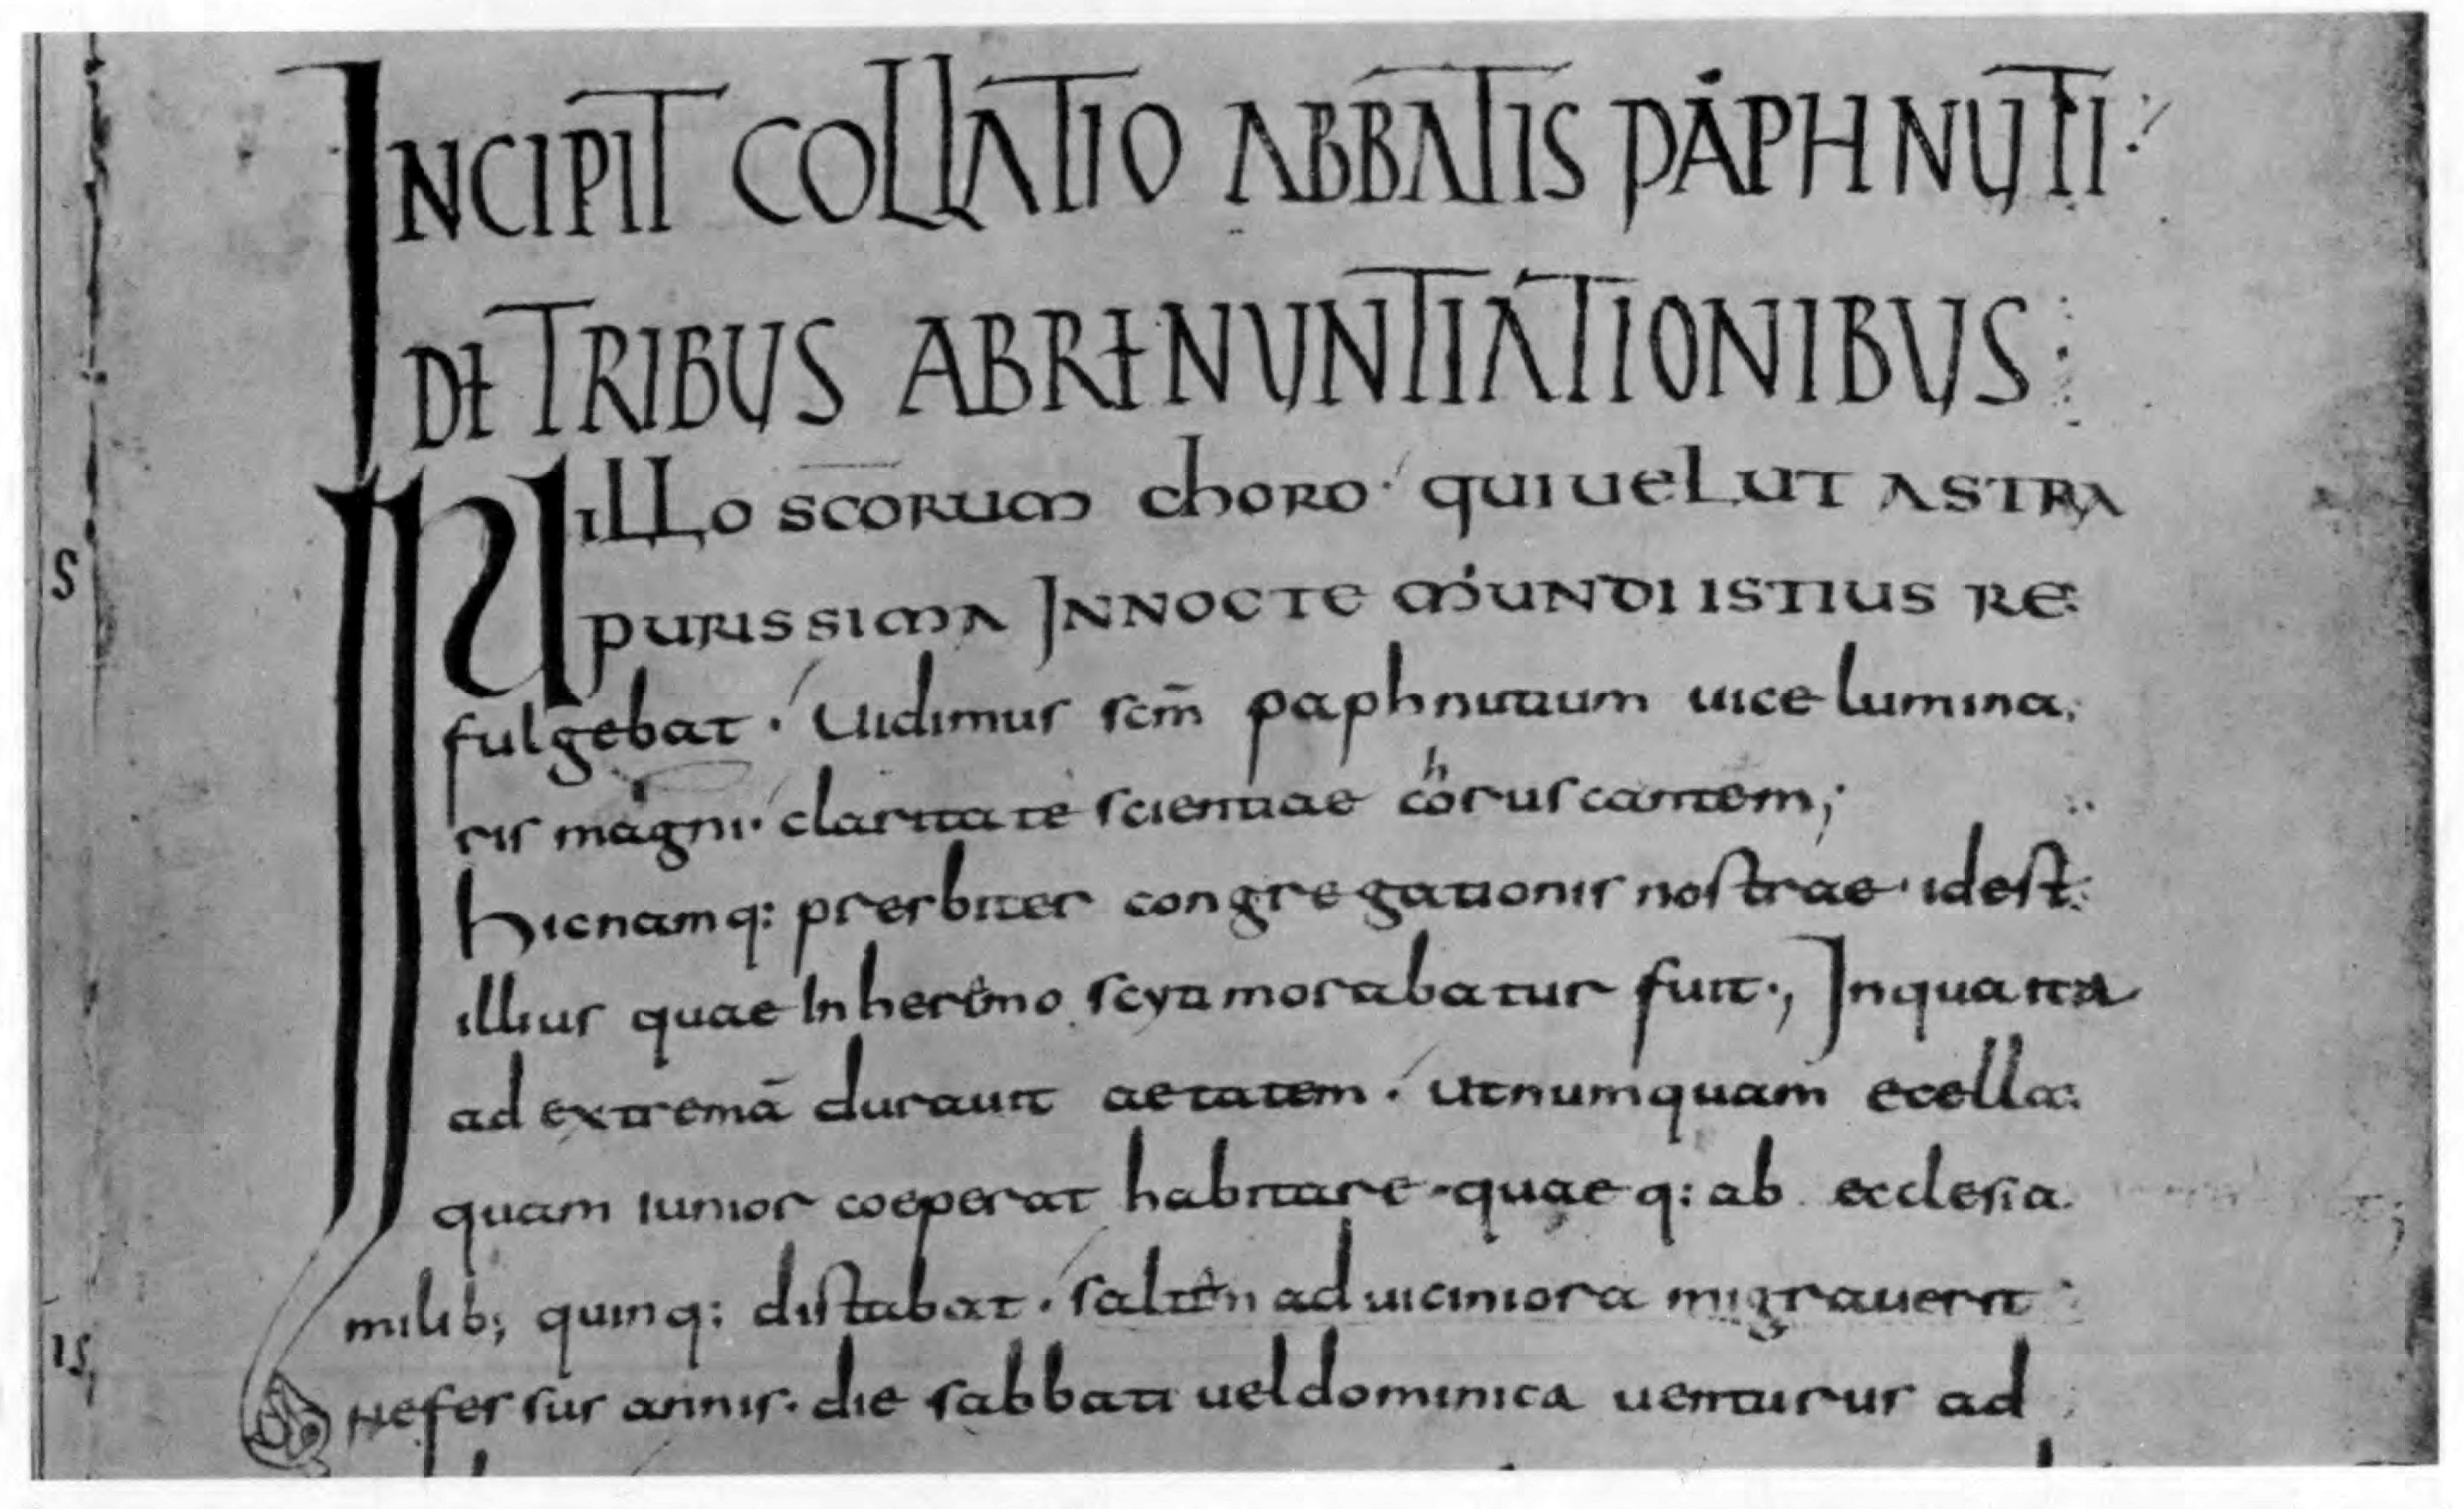 INCIPIT COLLATIO ABBATIS PAPHNUTI
DE TRIBUS ABRENUNTIATIONIBUS
IN ILLO SCŌRUM CHORO· QUI UELUT ASTRA
PURISSIMA IN NOCTE MUNDI ISTIUS RE
fulgebat· Uidimus scm̄ paphnutium uice lumina
ris magni· claritate scientiae choruscantem;
hic namq: presbiter congregationis nostrae· id est
illius quae In heremo scyti morabatur fuit·, In qua ita
ad extremā durauit aetatem· ut numquam e cella
quam iunior coeperat habitare· quaeq: ab ecclesia
milib; quinq: distabat· saltēn ad uiciniora migrauerit
Nefessus annis· die sabbati uel dominica uenturus ad
S
IS